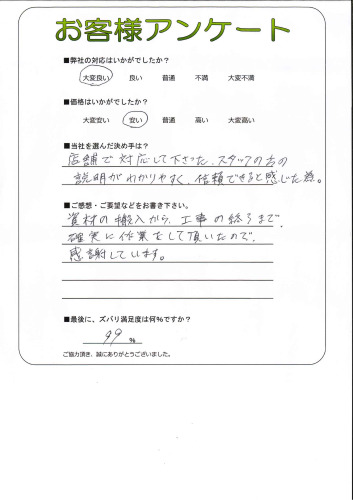 お客様アンケート
■弊社の対応はいかがでしたか?
大変良い 良い 普通 不満 大変不満
■価格はいかがでしたか?
大変安い 安い 普通 高い 大変高い
■当社を選んだ決め手は?
店舗で対応して下さった、スタッフの方の
説明がわかりやすく、信頼できると感じた為。
■ご感想・ご要望などをお書き下さい。
資材の搬入から、工事の終了まで、
確実に作業をして頂いたので、
感謝しています。
■最後に、ズバリ満足度は何%ですか?
99 %
ご協力頂き、誠にありがとうございました。